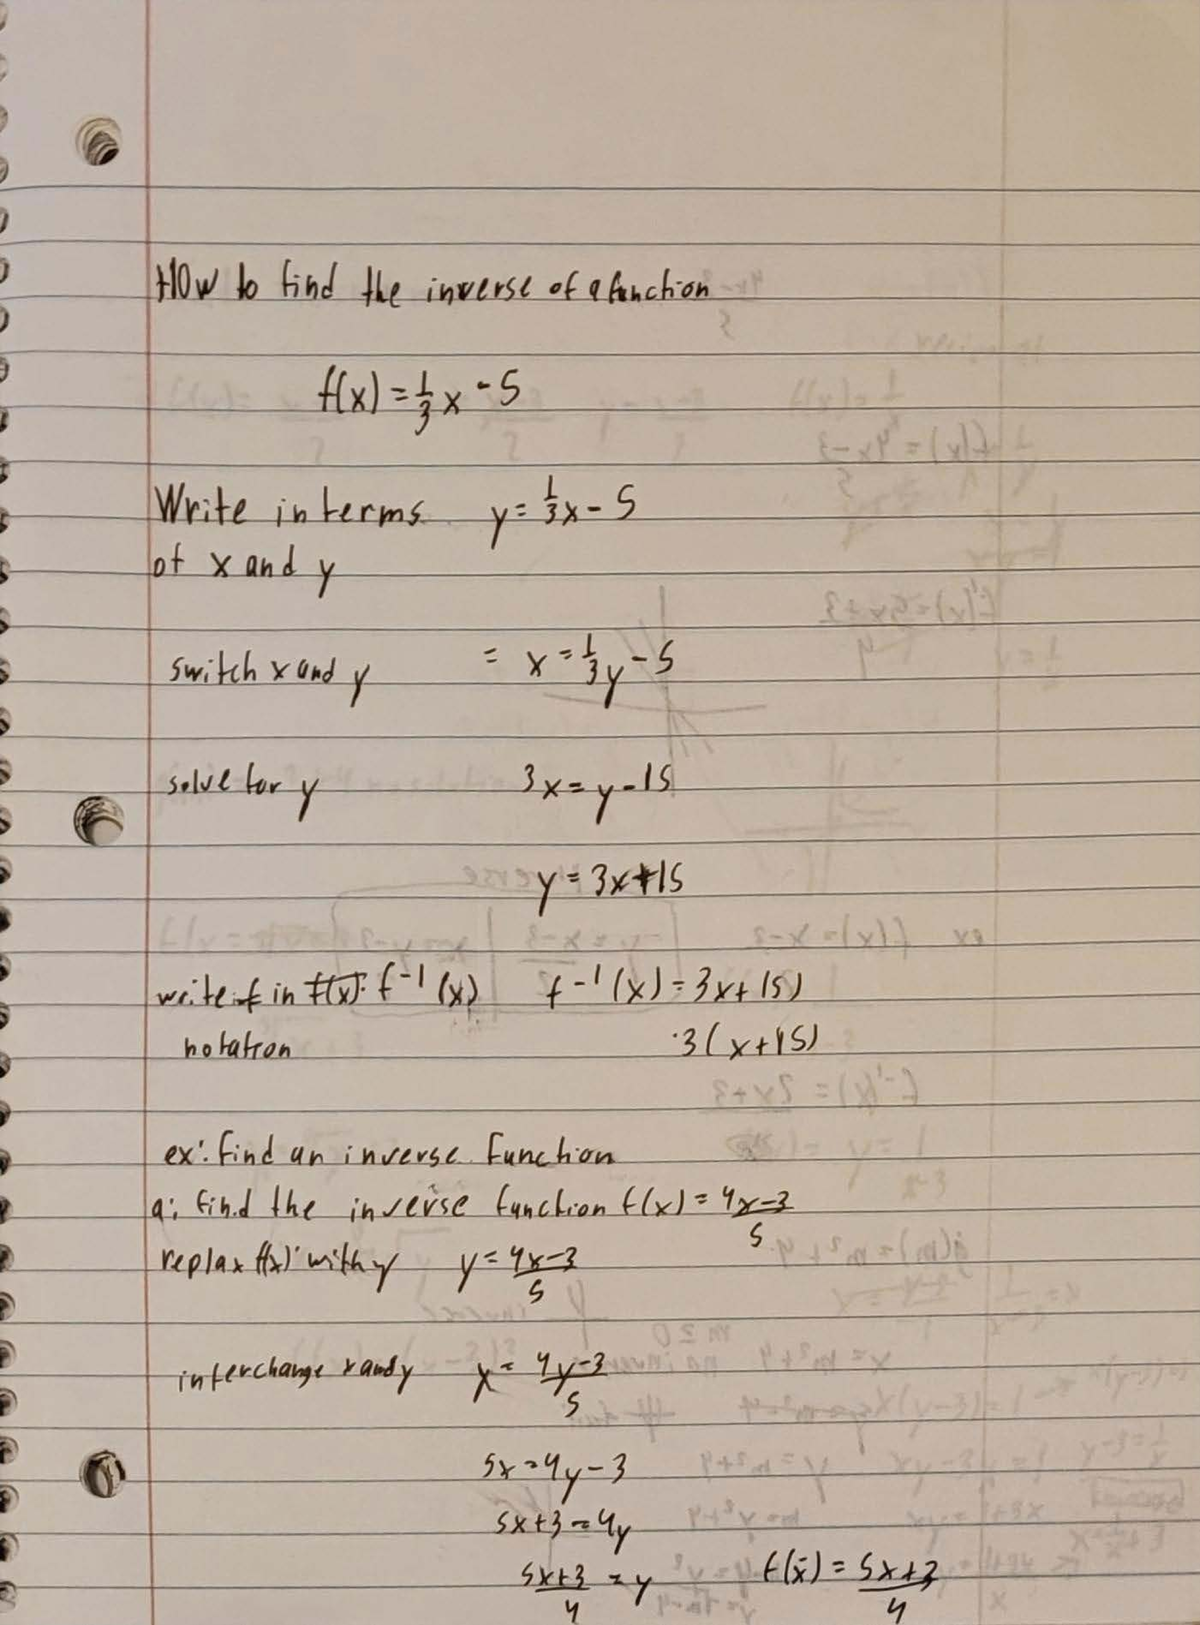 How to find the inverse of a function
f(x) = 1/3 x - 5
Write in terms y = 1/3 x - 5
of x and y
switch x and y = x = 1/3 y - 5
solve for y 3x = y - 15
y = 3x + 15
write in f⁻¹(x) f⁻¹(x) = 3x + 15)
notation 3(x + 15)
ex: find an inverse function
a: find the inverse function f(x) = 4x-3/5
replax f(x) with y y = 4x-3/5
interchange x and y x = 4y-3/5
5x = 4y - 3
5x + 3 = 4y
5x+3/4 = y f(x) = 5x+3/4